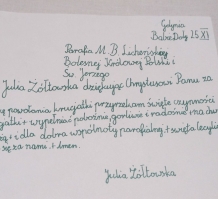 Gdynia
Babie Doły 25 XI
Parafia M. B. Licheńskiej
Bolesnej Królowej Polski i
Św Jerzego
Julia Żółtowska dziękując Chrystusowi Panu za
powołania przyrzekam święte czynności
wypełniać pobożnie, gorliwie i radośnie na chwałę
dla dobra wspólnoty parafialnej święta
się za nami. Amen.
Julia Żółtowska